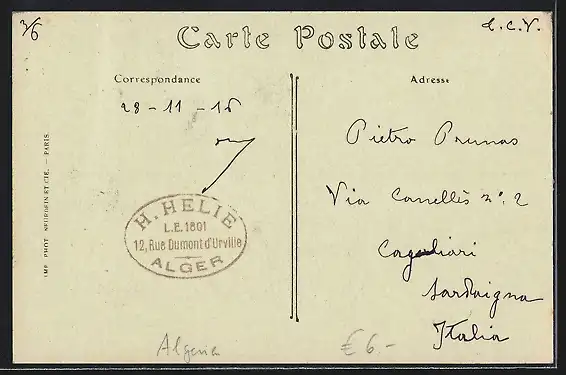 3/6
L.C.V.
Carte Postale
Correspondance
Adresse
28-11-16
H. HELIE
L.E. 1801
12, Rue Dumont d'Urville
ALGER
Pietro Prunas
Via Canelles n°. 2
Cagliari
Sardaigna
Italia
IMP. PHOT. NEURDEIN ET CIE. — PARIS.
Algeria
€ 6.-